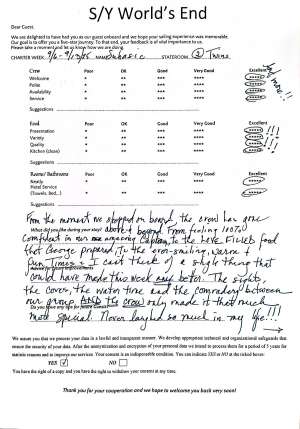 S/Y World's End
Dear Guest,
We are delighted to have had you as our guest onboard and we hope your sailing experience was memorable.
Our goal is to offer you a five-star journey. To that end, your feedback is of vital importance to us.
Please take a moment and let us know how we are doing.
CHARTER WEEK: 9/6 - 9/13/25 NAME: STATEROOM 2 Twins
Crew Poor OK Good Very Good Excellent
Welcome * ** *** **** *****
Polite * ** *** **** *****
Availability * ** *** **** *****
Service * ** *** **** *****
by now!!
Suggestions
Food Poor OK Good Very Good Excellent
Presentation * ** *** **** ***** !!!
Variety * ** *** **** ***** !!!
Quality * ** *** **** ***** !!!
Kitchen (clean) * ** *** **** *****
Suggestions
Rooms/ Bathrooms Poor OK Good Very Good Excellent
Neatly * ** *** **** *****
Hotel Service
(Towels, Bed...) * ** *** **** *****
Suggestions
From the moment we stepped on board, the crew has gone
What did you like during your stay? above & beyond. From feeling 100%
confident in our amazing Captain, to the food
that George prepared, to the ever-smiling, warm &
fun I can't think of a single thing that
could have made this week any better. The sights,
the coves, the water time and the comradery between
our group & the crew only made it that much
Do you have any tips for future guests?
more special. Never laughed so much in my life!!!
We assure you that we process your data in a lawful and transparent manner. We develop appropriate technical and organizational safeguards that
ensure the security of your data. After the anonymization and encryption of your personal data we intend to process them for a period of 5 years for
statistic reasons and to improve our services. Your consent is an indispensable condition. You can indicate YES or NO at the ticked boxes:
YES ✓ NO
You have the right of a copy and you have the right to withdraw your consent at any time.
Thank you for your cooperation and we hope to welcome you back very soon!